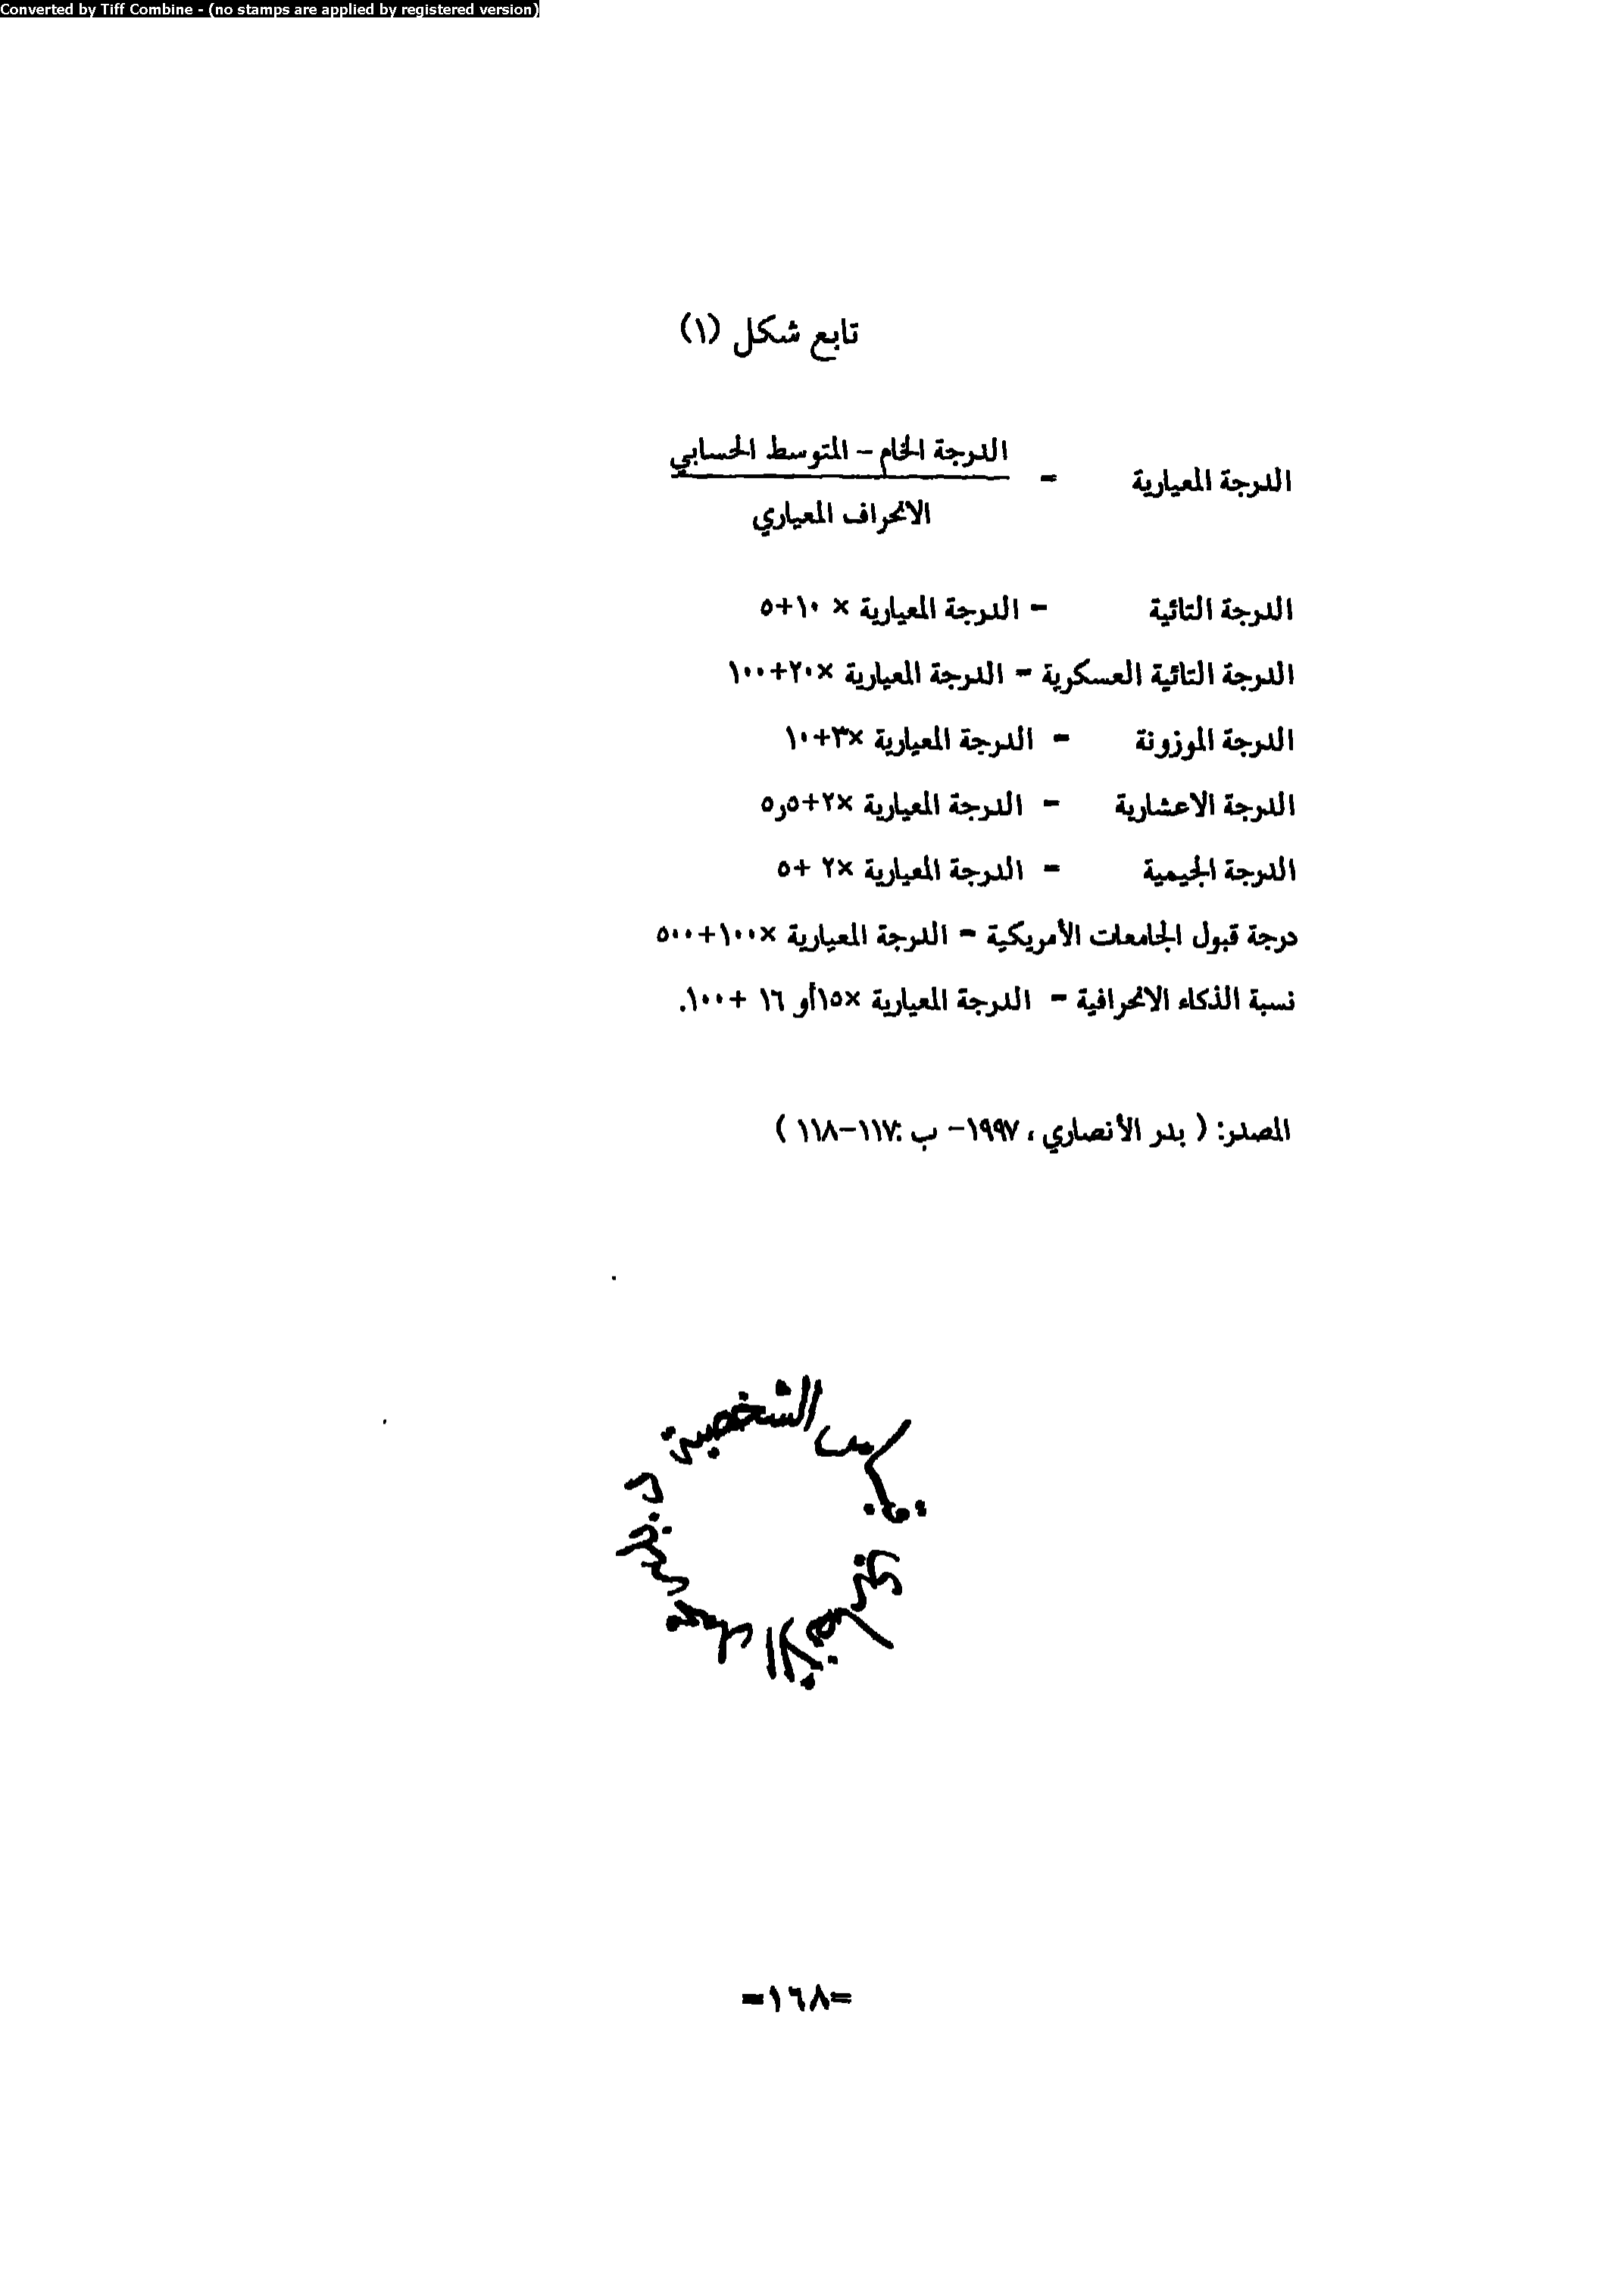 Converted by Tiff Combine - (no stamps are applied by registered version)
تابع شكل (١)
الدرجة المعيارية = الدرجة الخام - المتوسط الحسابي
الانحراف المعياري
الدرجة التائية = الدرجة المعيارية × ١٠+٥
الدرجة التائية العسكرية = الدرجة المعيارية ×٢٠+١٠٠
الدرجة الموزونة = الدرجة المعيارية ×٣+١٠
الدرجة الاعشارية = الدرجة المعيارية ×٢+٥ر٥
الدرجة الجيمية = الدرجة المعيارية ×٢ +٥
درجة قبول الجامعات الأمريكية = الدرجة المعيارية ×١٠٠+٥٠٠
نسبة الذكاء الانحرافية = الدرجة المعيارية ×١٥أو ١٦ +١٠٠.
المصدر: ( بدر الأنصاري ، ١٩٩٧- ب :١١٧-١١٨ )
الشخصية
=١٦٨=